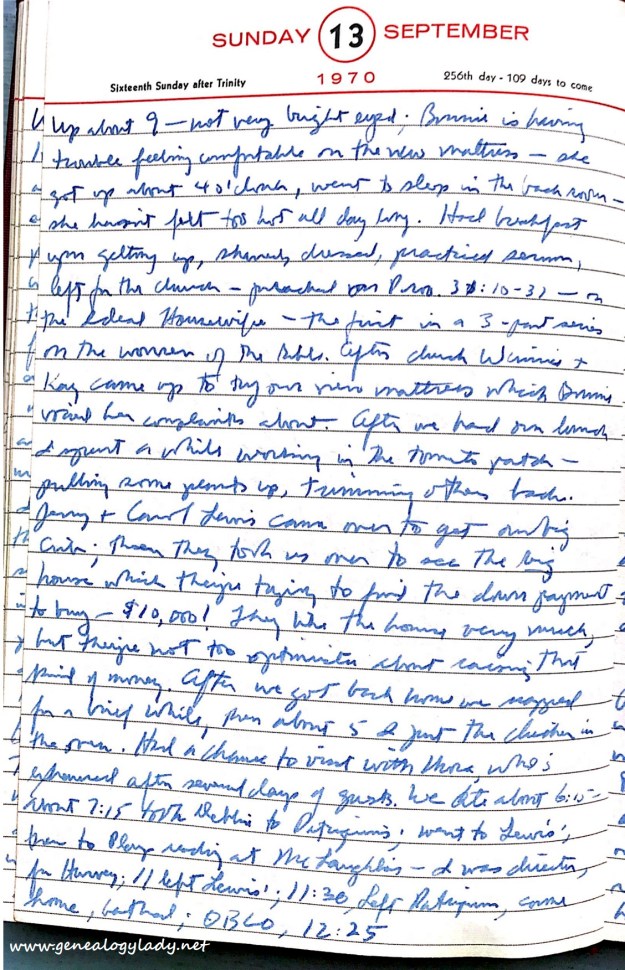 SUNDAY 13 SEPTEMBER
1970
Sixteenth Sunday after Trinity 256th day - 109 days to come
Up about 9 — not very bright eyed; Bonnie is having
trouble feeling comfortable on the new mattress — she
got up about 4 o'clock, went to sleep in the back room —
she hasn't felt too hot all day long. Had breakfast
upon getting up, showered, dressed, practiced sermon,
left for the church — preached on Prov. 31:10-31 — on
the Ideal Housewife — the first in a 3-part series
on the women of the Bible. After church Winnie +
Kay came up to try our new mattress which Bonnie
voiced her complaints about. After we had our lunch
I spent a while working in the tomato patch —
pulling some plants up, trimming others back.
Jerry + Carol Lewis came over to get our big
crib; then they took us over to see the big
house which they're trying to find the down payment
to buy — $10,000! They like the house very much,
but they're not too optimistic about raising that
kind of money. After we got back home we napped
for a brief while, then about 5 I put the chicken in
the oven. Had a chance to visit with who's
after several days of guests. We ate about 6:15 —
about 7:15 took Debbie to Patriquins; went to Lewis',
then to Plays reading at McLaughlin — I was director,
for Harvey; 11 left Lewis'; 11:30, left Patriquin, came
home, bathed; OBCO, 12:25
www.genealogylady.net